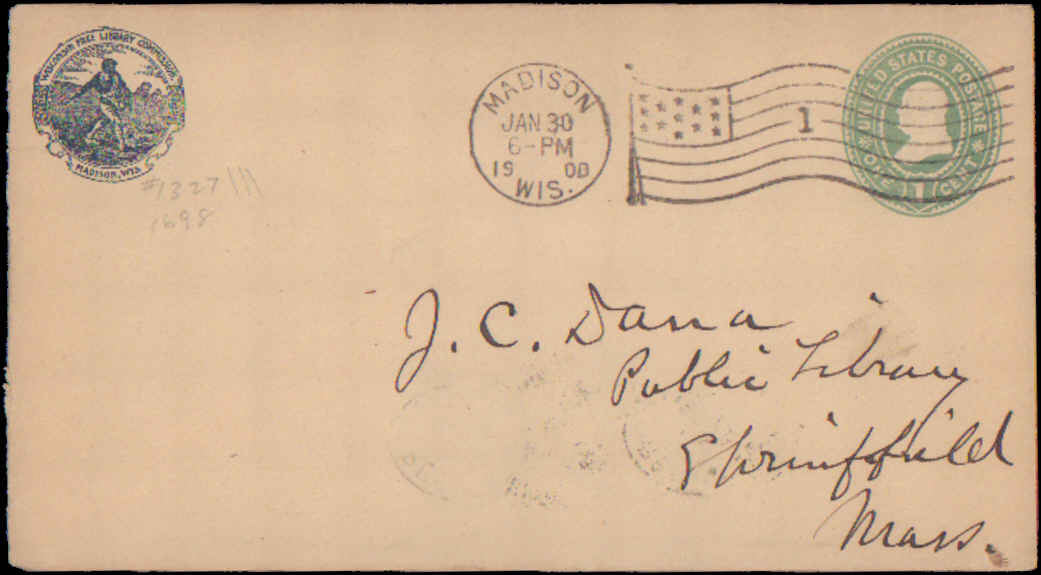 WISCONSIN FREE LIBRARY COMMISSION
MADISON, WIS.
#1327
1698
MADISON
JAN 30
6-PM
19 00
WIS.
1
UNITED STATES POSTAGE
ONE 1 CENT
J. C. Dana
Public Library
Springfield
Mass.